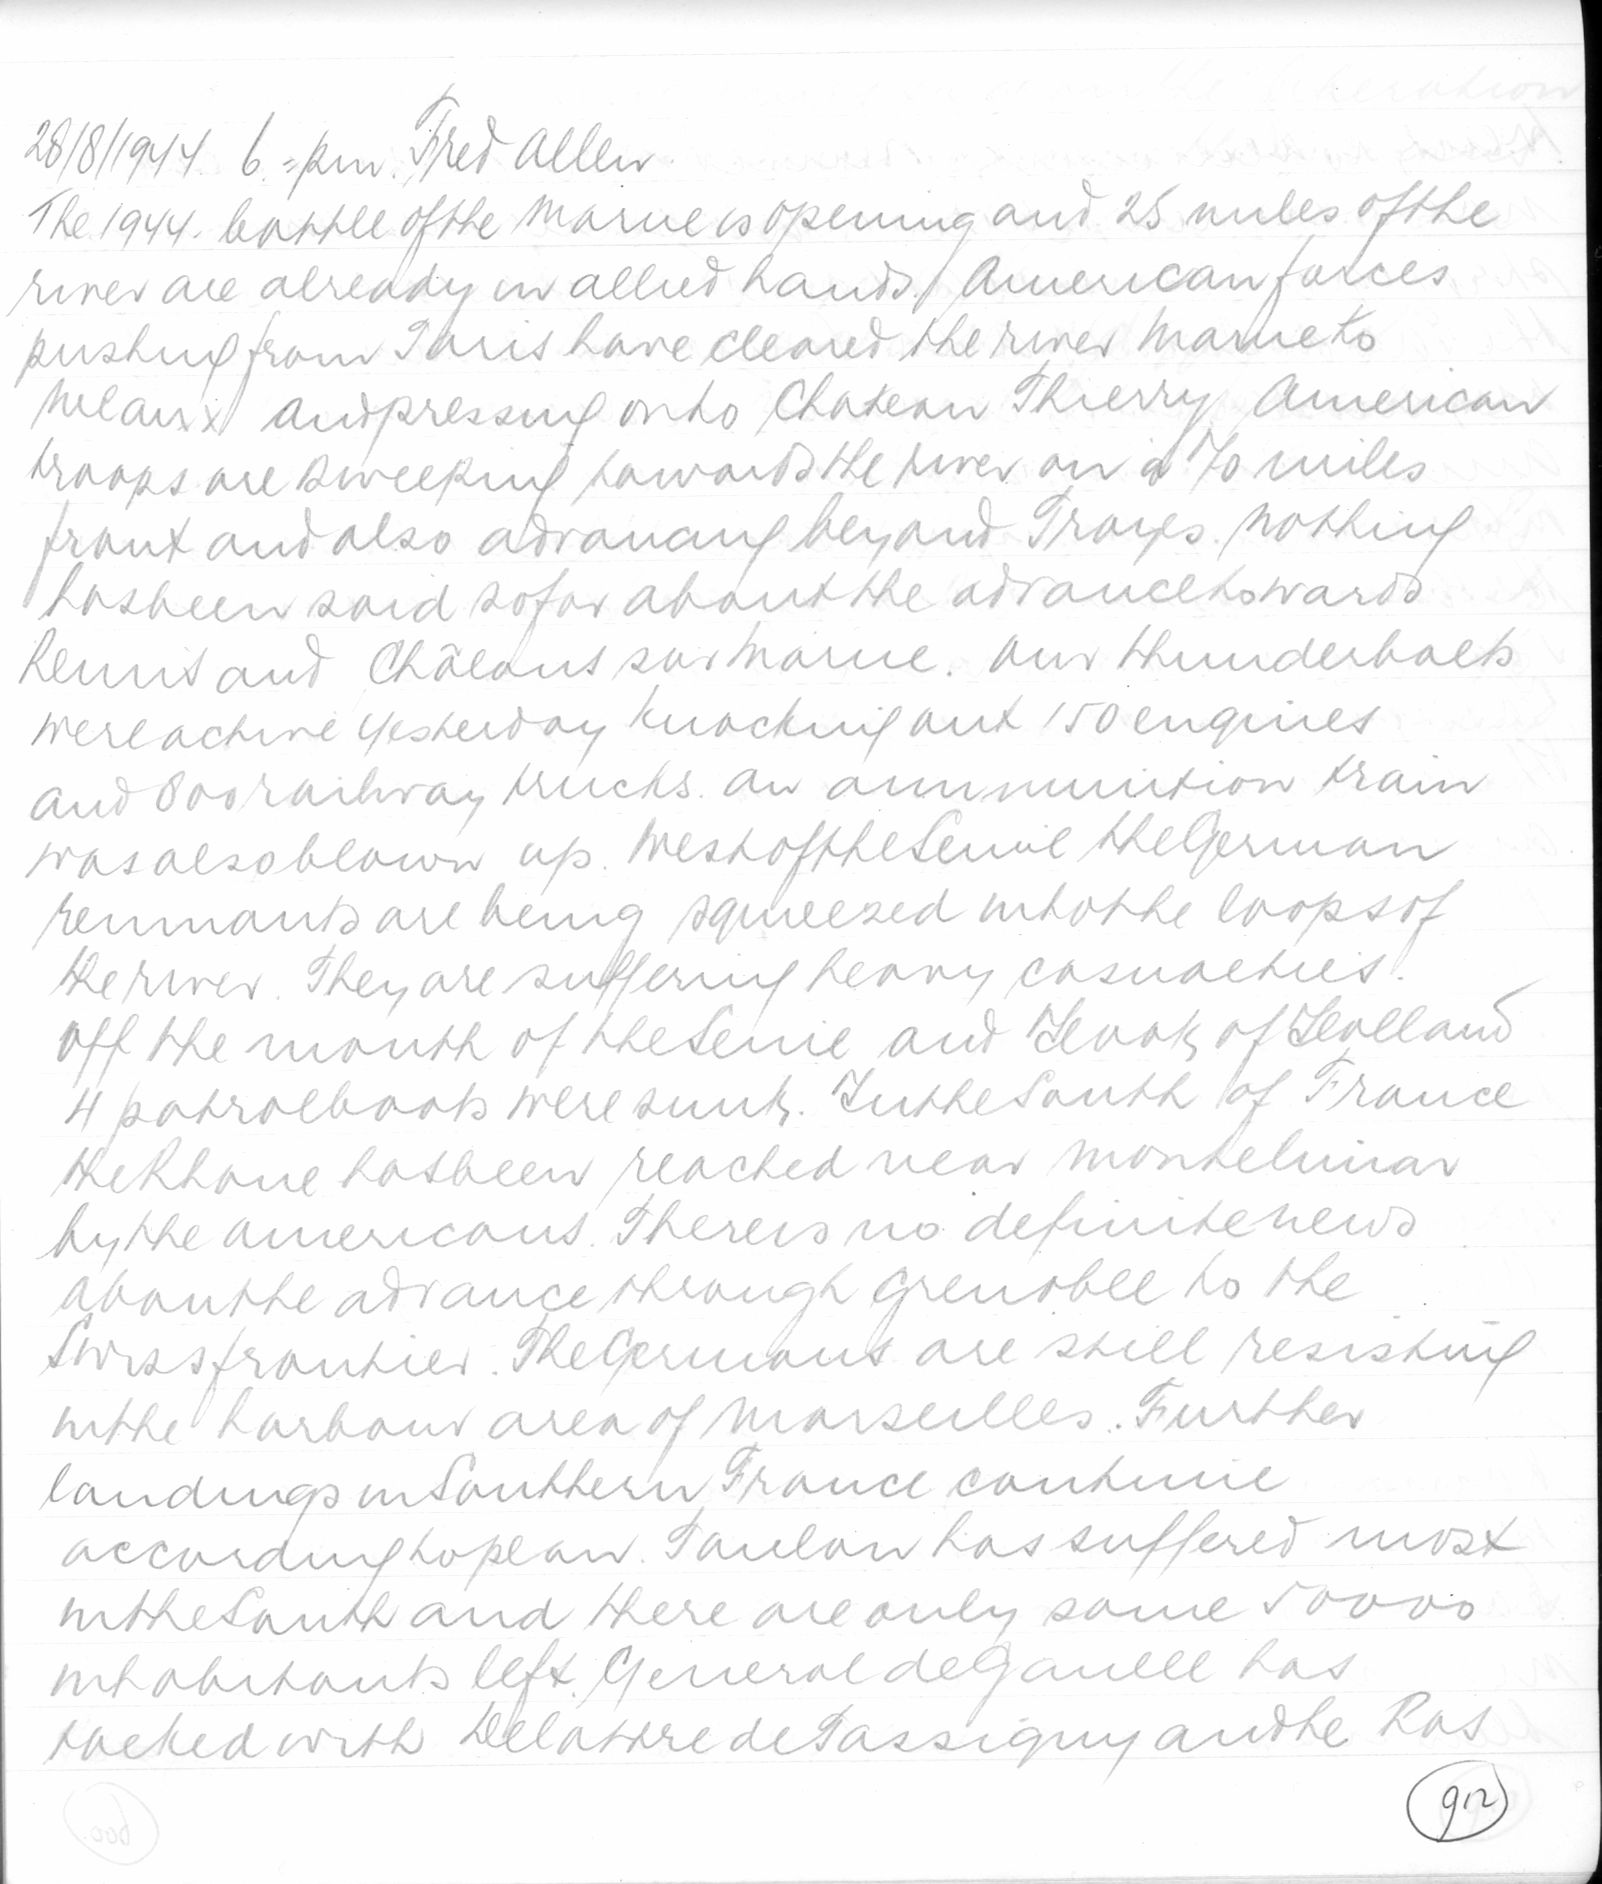 28/8/1944. 6.=pm. Fred Allen.
The 1944. battle of the Marne is opening and 25 miles of the
river are already in allied hands. American forces
pushing from Paris have cleared the river Marne to
Meaux and pressing on to Chateau Thierry. American
troops are sweeping towards the river on a 70 miles
front and also advancing beyond Troyes. Nothing
has been said so far about the advance towards
Reims and Châlons sur Marne. Our thunderbolts
were active yesterday knocking out 150 engines
and 800 railway trucks. An ammunition train
was also blown up. West of the Seine the German
remnants are being squeezed into the loops of
the river. They are suffering heavy casualties.
Off the mouth of the Seine and Hook of Holland
4 patrolboats were sunk. In the South of France
the Rhone has been reached near Montelimar
by the Americans. There is no definite news
about the advance through Grenoble to the
Swiss frontier. The Germans are still resisting
in the harbour area of Marseilles. Further
landings in Southern France continue
according to plan. Toulon has suffered most
in the South and there are only some 50000
inhabitants left. General de Gaulle has
talked with Delattre de Tassigny and he has
912